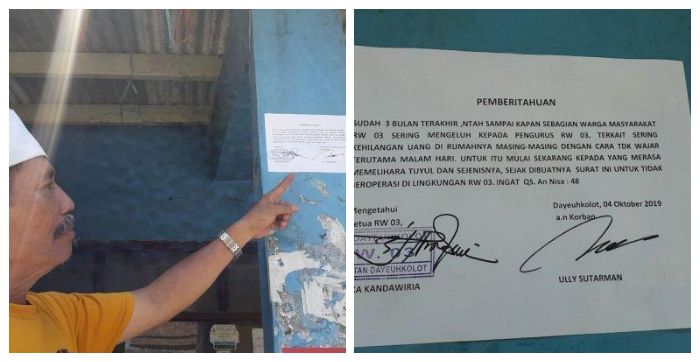 PEMBERITAHUAN
SUDAH 3 BULAN TERAKHIR ,NTAH SAMPAI KAPAN SEBAGIAN WARGA MASYARAKAT
RW 03 SERING MENGELUH KEPADA PENGURUS RW 03, TERKAIT SERING
KEHILANGAN UANG DI RUMAHNYA MASING-MASING DENGAN CARA TDK WAJAR
TERUTAMA MALAM HARI. UNTUK ITU MULAI SEKARANG KEPADA YANG MERASA
MEMELIHARA TUYUL DAN SEJENISNYA, SEJAK DIBUATNYA SURAT INI UNTUK TIDAK
BEROPERASI DI LINGKUNGAN RW 03. INGAT QS. An Nisa : 48
Mengetahui
Ketua RW 03,
Dayeuhkolot, 04 Oktober 2019
a.n Korban
DAYEUHKOLOT
RW. 03
TAN DAYEUHKOLOT
KA KANDAWIRIA
ULLY SUTARMAN